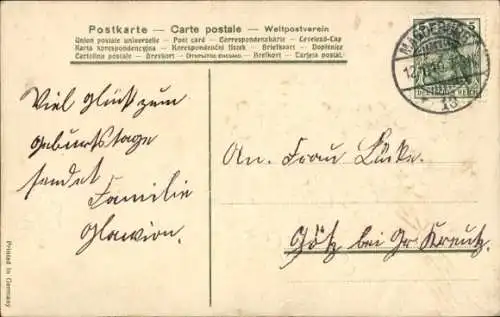 Postkarte — Carte postale — Weltpostverein
Union postale universelle – Post card – Correspondenzkarte – Levelező-Lap
Karta korespondencyjna – Korespondenční lístek – Briefkaart – Dopisnice
Cartolina postale – Brevkort – – Brefkort – Tarjeta postal.
MAGDEBURG
5
12
Viel Glück zum
Geburtstage
sendet
Familie
Glawion.
An. Frau Lücke.
Götz bei Gr Kreutz.
Printed in Germany